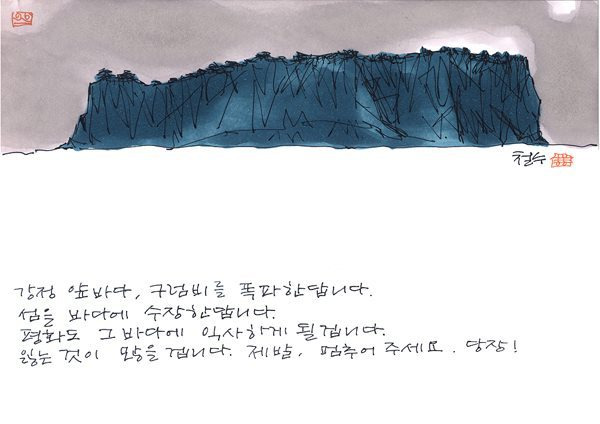 철수
강정 앞바다, 구럼비를 폭파한답니다.
섬을 바다에 수장한답니다.
평화도 그 바다에 익사하게 될겁니다.
잃는 것이 많을 겁니다. 제발, 멈추어 주세요. 당장!